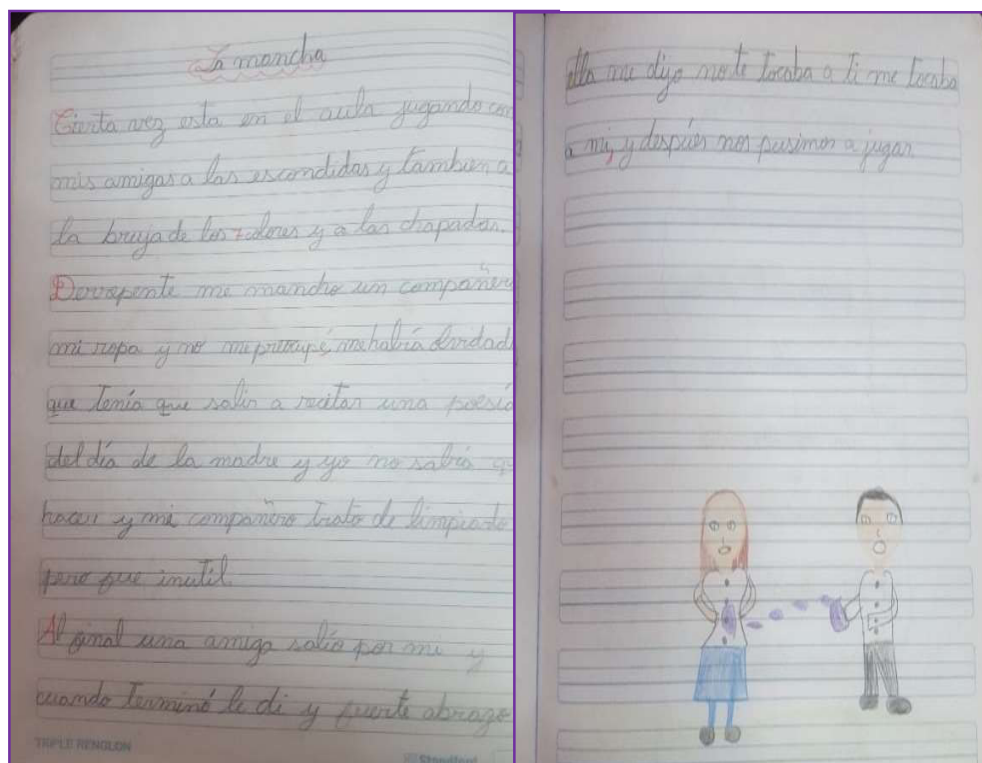 La mancha
Cierta vez esta en el aula jugando con
mis amigas a las escondidas y tambien a
la bruja de los 7 colores y a las chapadas.
Derrepente me mancho un compañer
mi ropa y no me preocupé, me había olvidad
que tenía que salir a recitar una poesía
del día de la madre y yo no sabía qu
hacer y mi compañero trato de limpiarlo
pero fue inutil.
Al final una amiga salió por mi y
cuando terminó le di y fuerte abrazo
TRIPLE RENGLON
Standford
ella me dijo no te tocaba a ti me tocaba
a mi, y despúes nos pusimos a jugar.